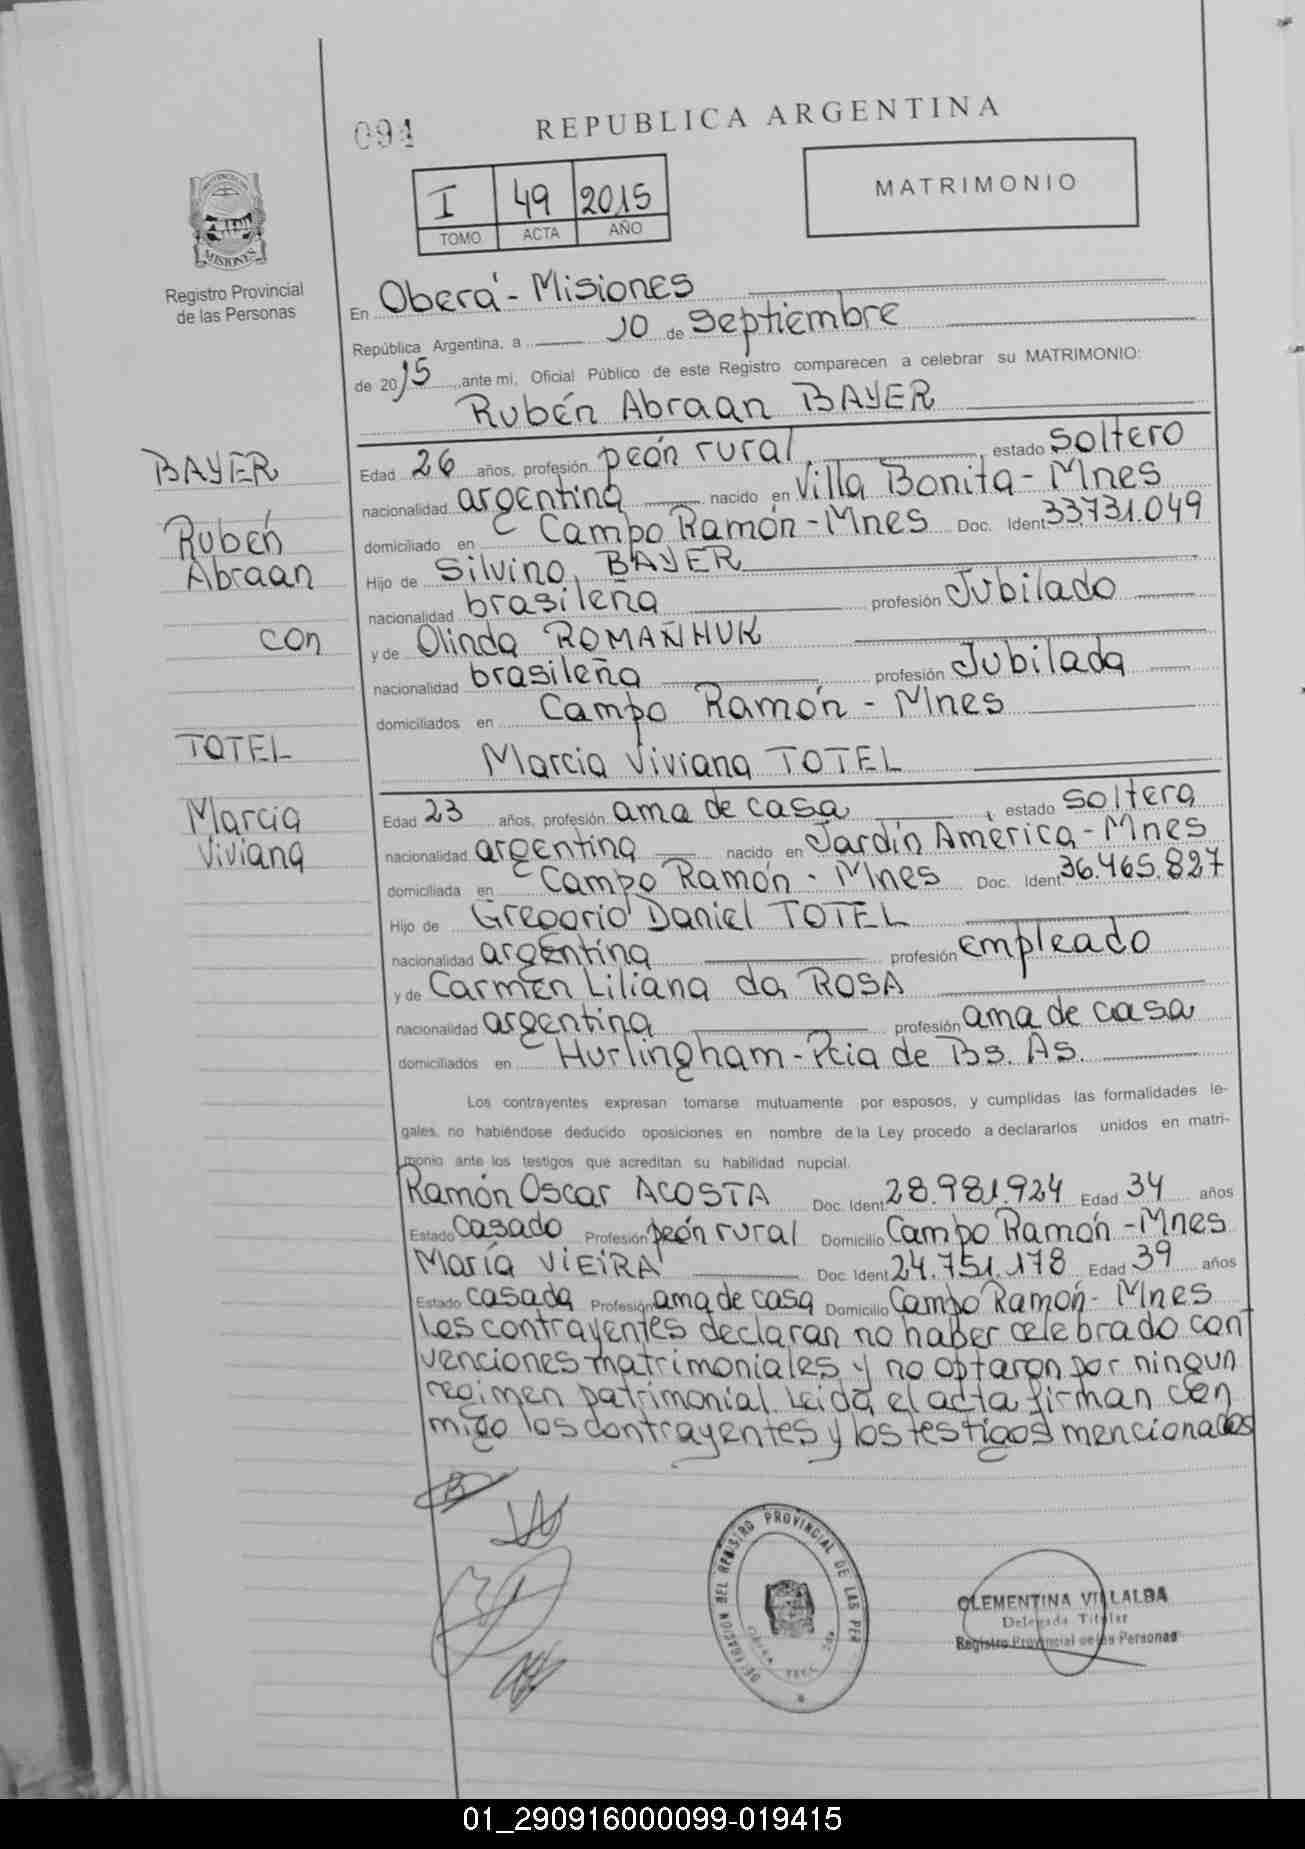 094
REPUBLICA ARGENTINA
I 49 2015
TOMO ACTA AÑO
MATRIMONIO
PROVINCIA DE
MISIONES
Registro Provincial
de las Personas
En Oberá - Misiones
República Argentina, a 10 de Septiembre
de 2015, ante mi, Oficial Público de este Registro comparecen a celebrar su MATRIMONIO:
Rubén Abraan BAYER
BAYER
Rubén
Abraan
con
TOTEL
Marcia
Viviana
Edad 26 años, profesión peón rural, estado soltero
nacionalidad argentina nacido en Villa Bonita - Mnes
domiciliado en Campo Ramón - Mnes Doc. Ident. 33.731.049
Hijo de Silvino BAYER
nacionalidad brasileña profesión Jubilado
y de Olinda ROMAÑHUK
nacionalidad brasileña profesión Jubilada
domiciliados en Campo Ramón - Mnes
Marcia Viviana TOTEL
Edad 23 años, profesión ama de casa, estado soltera
nacionalidad argentina nacido en Jardín América - Mnes
domiciliada en Campo Ramón - Mnes Doc. Ident. 36.465.827
Hijo de Gregorio Daniel TOTEL
nacionalidad argentina profesión empleado
y de Carmen Liliana da ROSA
nacionalidad argentina profesión ama de casa
domiciliados en Hurlingham - Pcia de Bs. As.
Los contrayentes expresan tomarse mutuamente por esposos, y cumplidas las formalidades le-
gales, no habiéndose deducido oposiciones en nombre de la Ley procedo a declararlos unidos en matri-
monio ante los testigos que acreditan su habilidad nupcial.
Ramón Oscar ACOSTA Doc. Ident. 28.981.924 Edad 34 años
Estado casado Profesión peón rural Domicilio Campo Ramón - Mnes
María VIEIRA Doc. Ident. 24.751.178 Edad 39 años
Estado casada Profesión ama de casa Domicilio Campo Ramón - Mnes
Los contrayentes declaran no haber celebrado con
venciones matrimoniales y no optaron por ningun
regimen patrimonial. Leida el acta firman con
migo los contrayentes y los testigos mencionados
DELEGACION DEL REGISTRO PROVINCIAL DE LAS PER
CLEMENTINA VILLALBA
Delegada Titular
Registro Provincial de las Personas
01_290916000099-019415